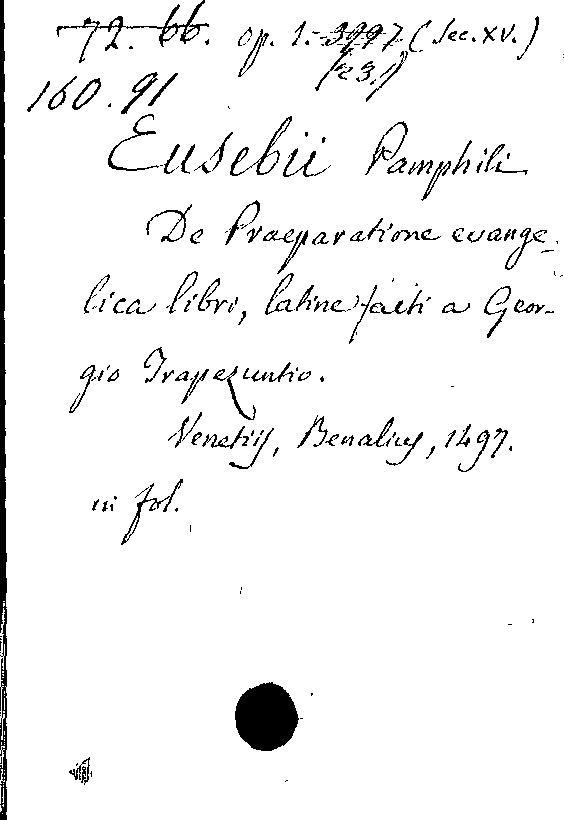 72. 66. op. 1. 3997 (Sec. XV.)
(231)
160.91
Eusebii Pamphili
De Praeparatione evange-
lica libri, latine facti a Geor-
gio Trapezuntio.
Venetiis, Benalius, 1497.
in fol.